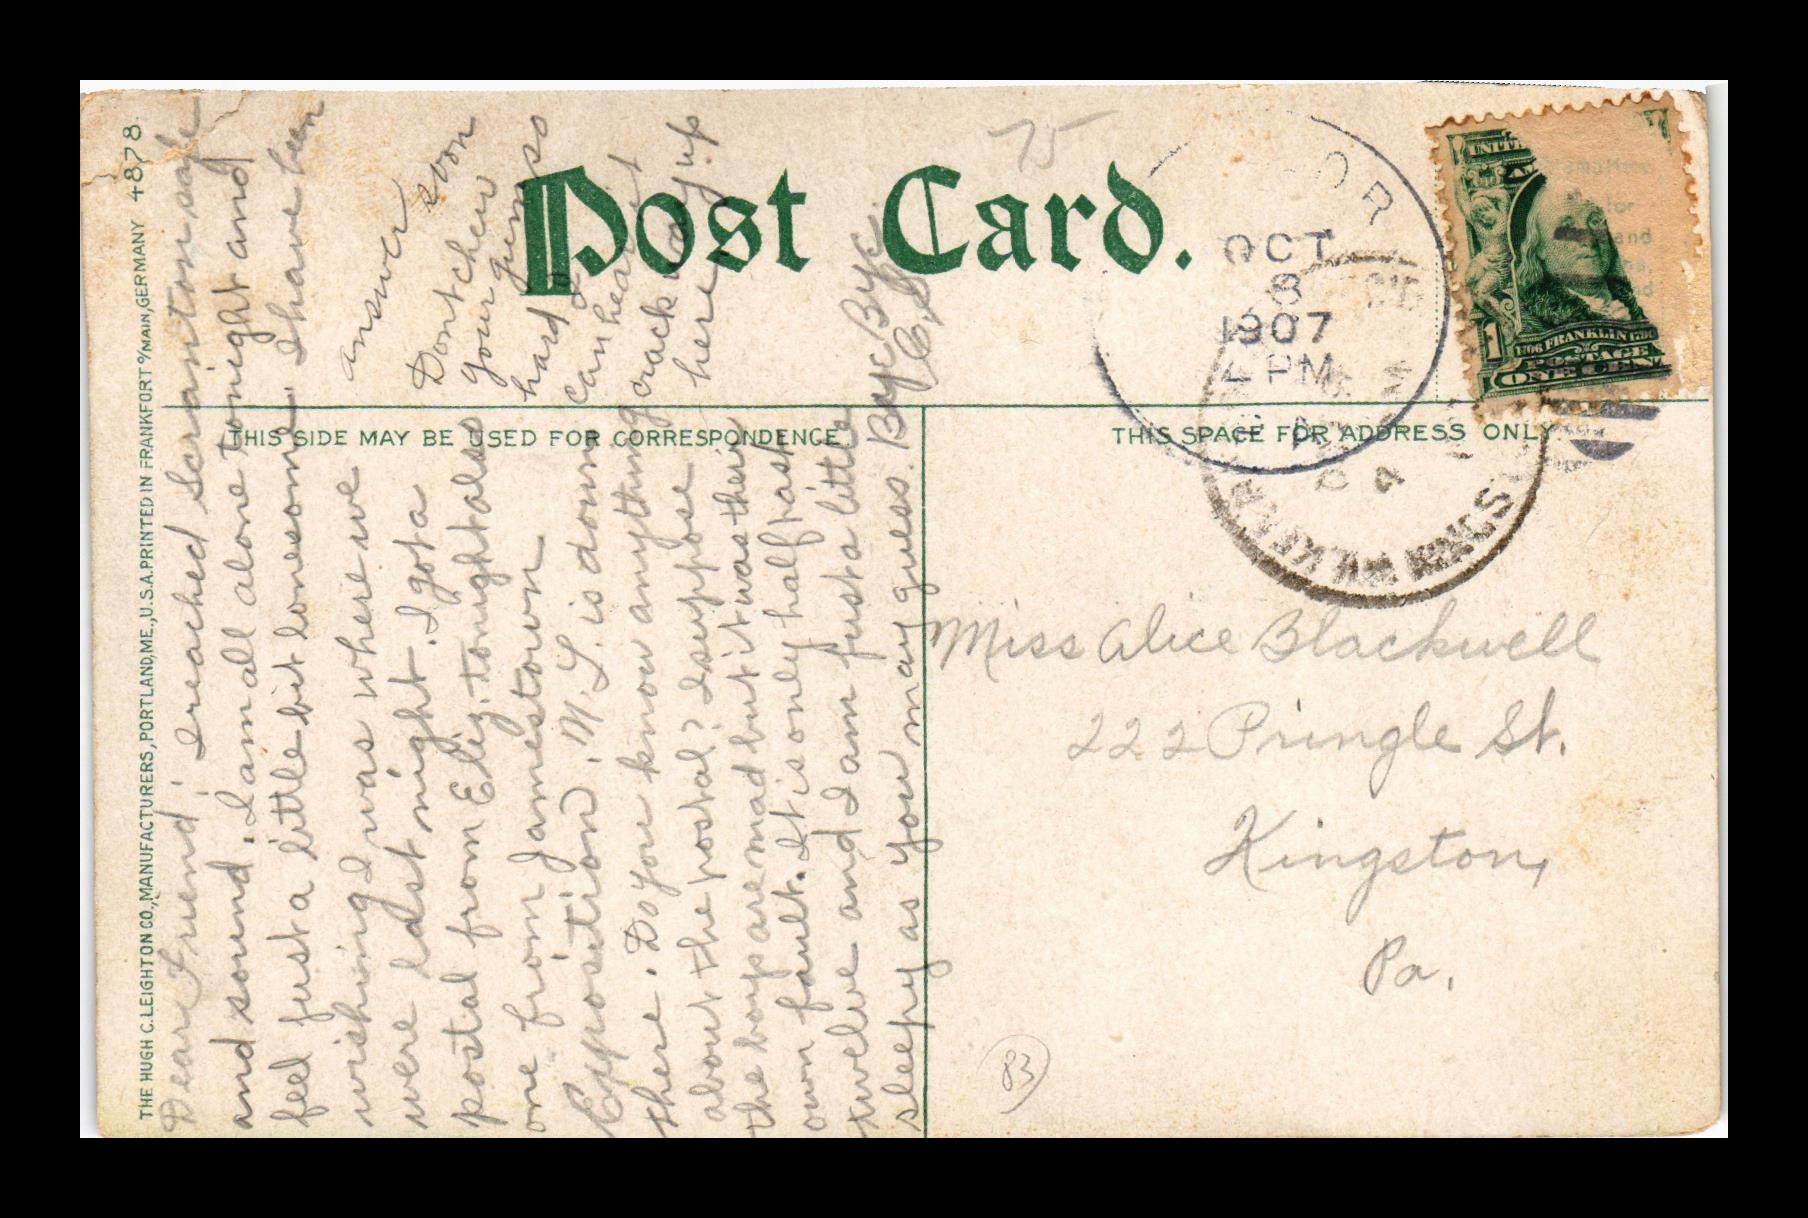 Post Card.
THIS SIDE MAY BE USED FOR CORRESPONDENCE
THIS SPACE FOR ADDRESS ONLY.
THE HUGH C. LEIGHTON CO., MANUFACTURERS, PORTLAND, ME., U.S.A. PRINTED IN FRANKFORT o/MAIN, GERMANY 4878.
Dear Friend; I reached Scranton safe
and sound. I am all alone tonight and
feel just a little bit lonesome. I have been
wishing I was where we
were last night. I got a
postal from Eliz. tonight also
one from Jamestown
Exposition. M. L. is down
there. Do you know anything
about the postal? I suppose
the boys are mad but it was their
own fault. It is only half past
twelve and I am just a little
sleepy as you may guess. Bye Bye.
answer soon
Dont chew
your gum so
hard I
can hear it
crack way up
here.
75
OR
OCT
8
1907
4 PM
KINGS
UNIT
1
FRANKLIN
POSTAGE
ONE CENT
and
Miss Alice Blackwell
222 Pringle St.
Kingston,
Pa.
83